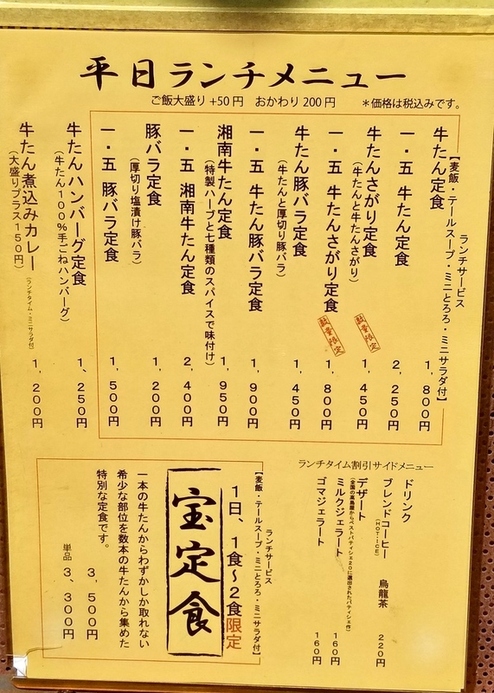 平日ランチメニュー
ご飯大盛り+50円　おかわり200円　＊価格は税込みです。
ランチサービス
【麦飯・テールスープ・ミニとろろ・ミニサラダ付】
牛たん定食　１，８００円
一・五 牛たん定食　２，２５０円
牛たんさがり定食　数量限定　１，４５０円
（牛たんと牛たんさがり）
一・五 牛たんさがり定食　数量限定　１，８００円
牛たん豚バラ定食　１，４５０円
（牛たんと厚切り豚バラ）
一・五 牛たん豚バラ定食　１，９００円
湘南牛たん定食　１，９５０円
（特製ハーブと七種類のスパイスで味付け）
一・五 湘南牛たん定食　２，４００円
豚バラ定食　１，２００円
（厚切り塩漬け豚バラ）
一・五 豚バラ定食　１，５００円
牛たんハンバーグ定食　１，２５０円
（牛たん１００％手ごねハンバーグ）
牛たん煮込みカレー　１，２００円
（大盛りプラス１５０円）
（ランチタイム・ミニサラダ付）
ランチタイム割引サイドメニュー
ドリンク
ブレンドコーヒー　烏龍茶　２２０円
（HOT・ICE）
デザート
ミルクジェラート　１６０円
ゴマジェラート　１６０円
ランチサービス
【麦飯・テールスープ・ミニとろろ・ミニサラダ付】
１日、１食〜２食限定
宝定食
一本の牛たんからわずかしか取れない
希少な部位を数本の牛たんから集めた
特別な定食です。
３，５００円
単品　３，３００円